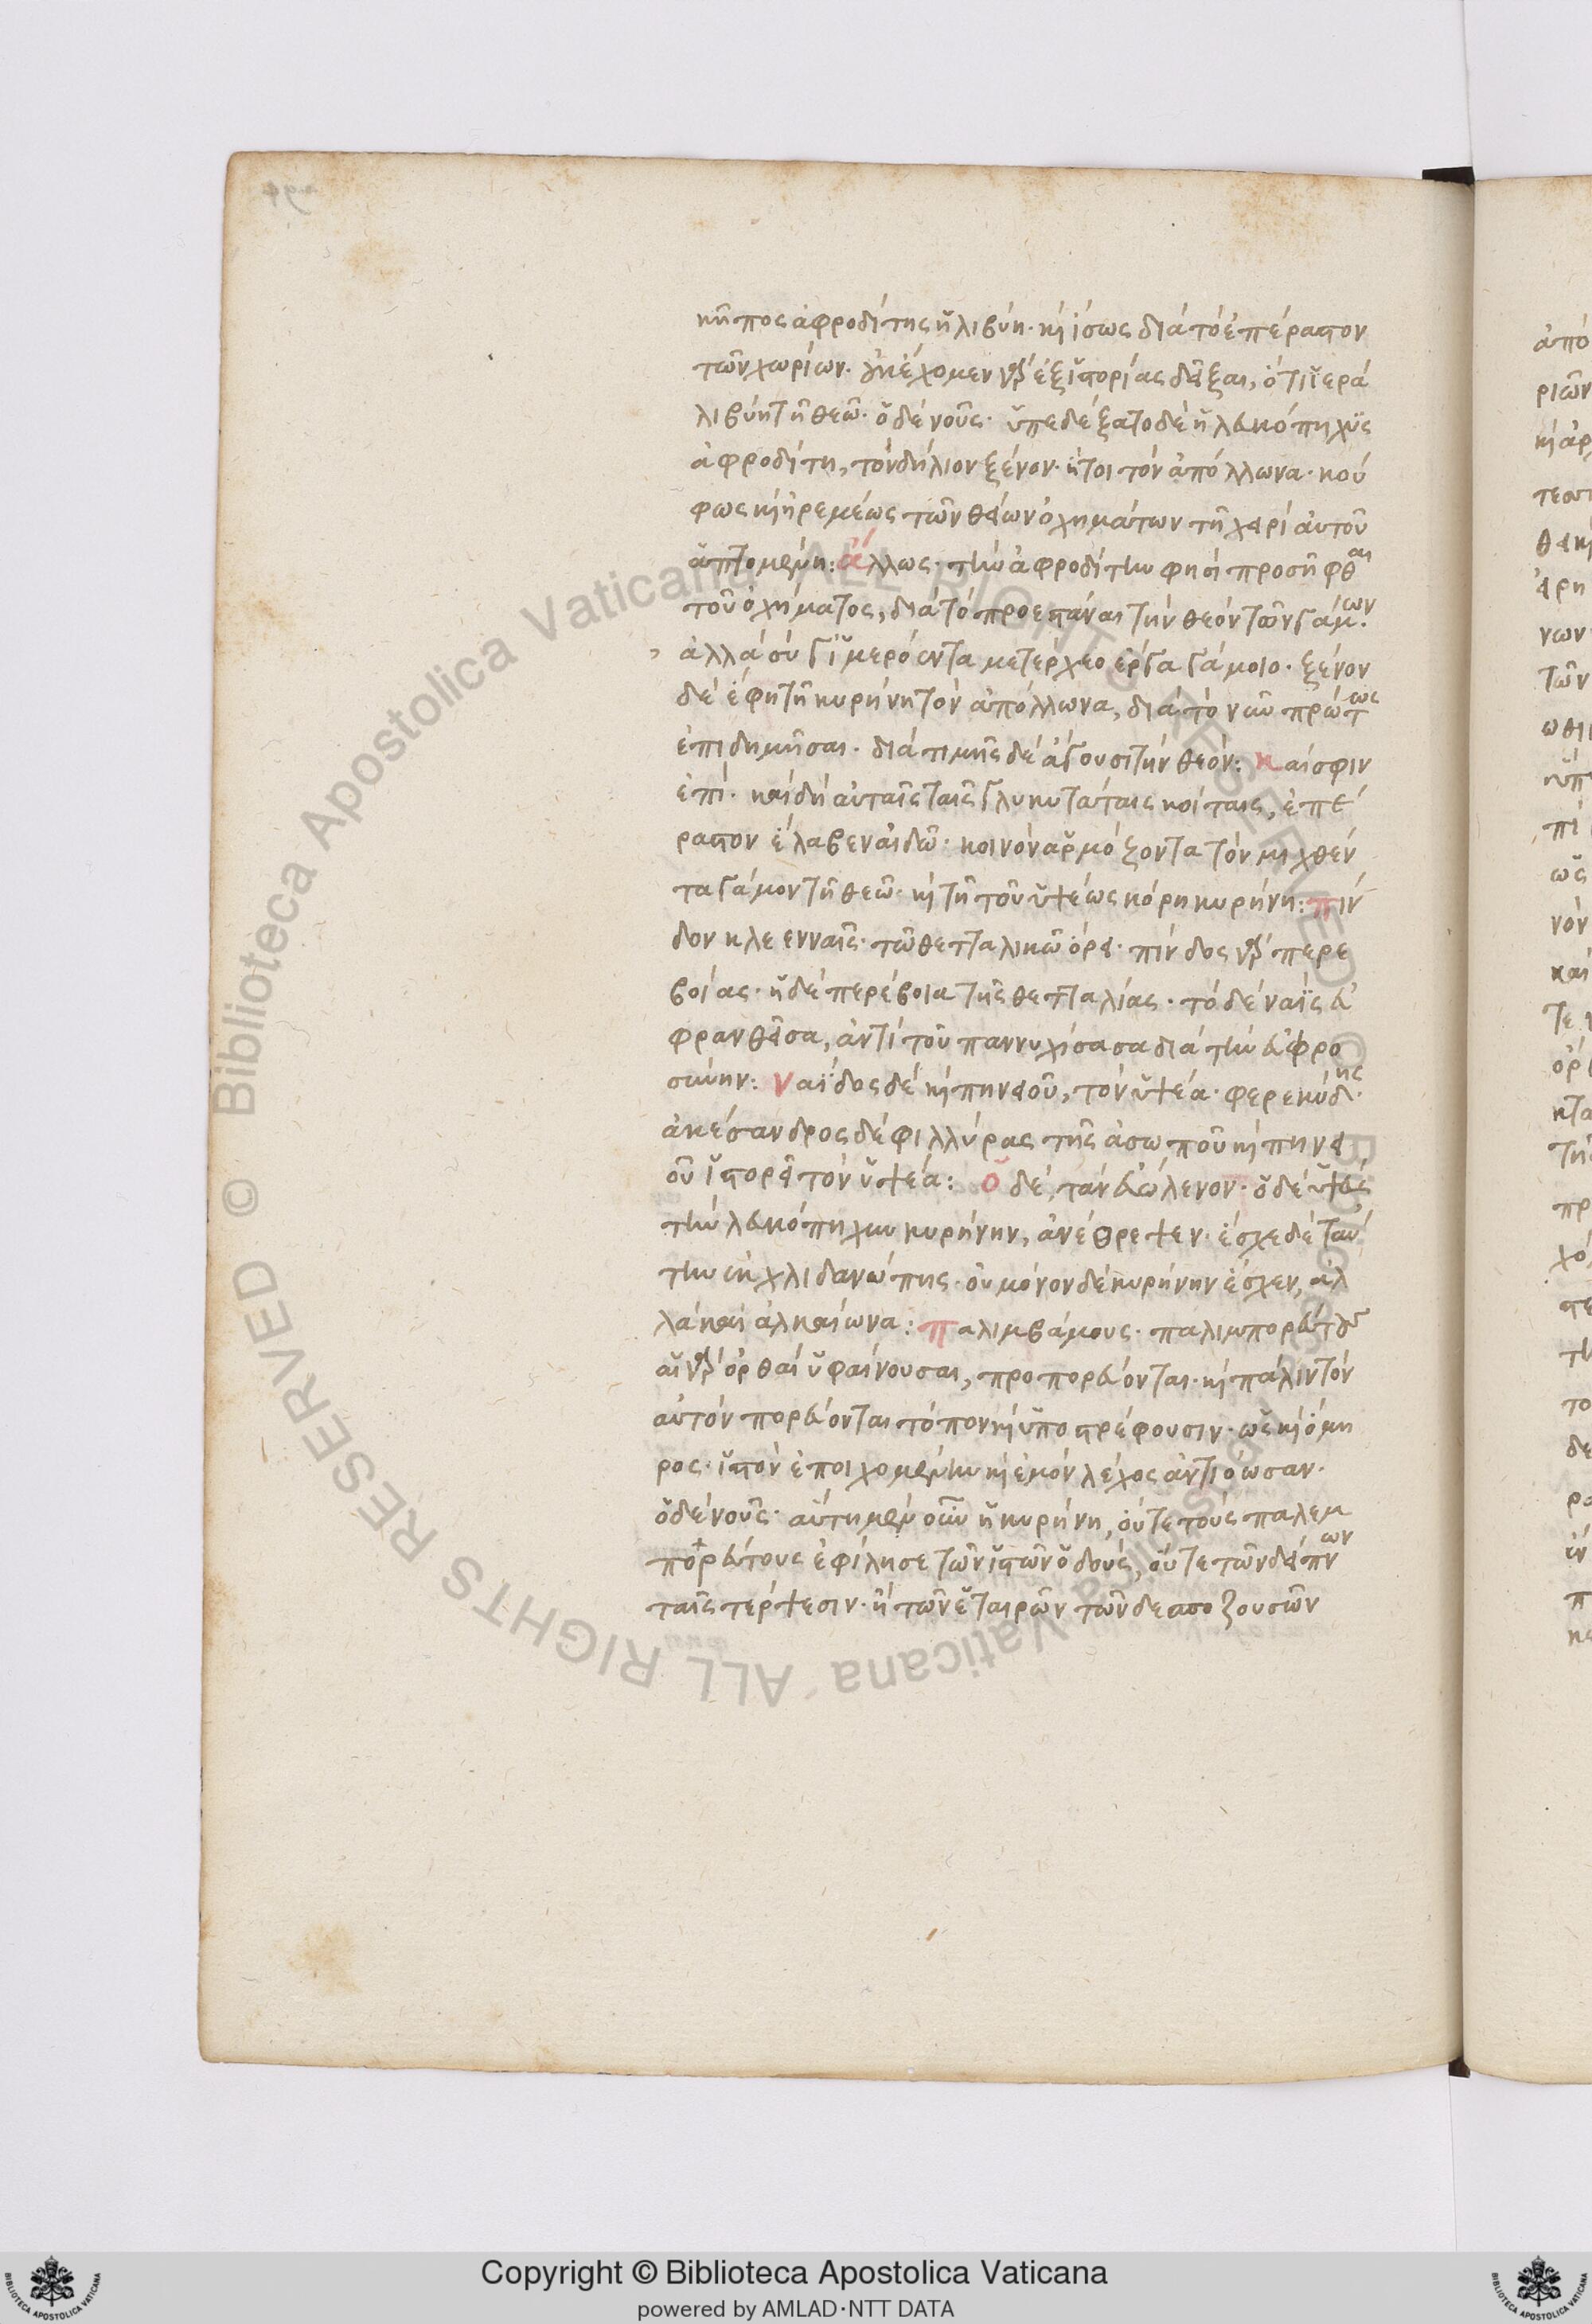 κῆπος ἀφροδίτης ἡ λιβύη· καὶ ἴσως διὰ τὸ ἐπέραστον
τῶν χωρίων. οὐκ ἔχομεν γὰρ ἐξ ἱστορίας δεῖξαι, ὅτι ἱερὰ
λιβύη τῆ θεῶ· ὁ δὲ νοῦς· ὑπεδέξατο δὲ ἡ λευκόπηχυς
ἀφροδίτη, τὸν δήλιον ξένον· ἤτοι τὸν ἀπόλλωνα· κού
φως καὶ ἠρεμέως τῶν θείων ὀχημάτων τῆ χειρὶ αὐτοῦ
ἁπτομένη: ἄλλως· τὴν ἀφροδίτην φησὶ προσῆφθαι
τοῦ ὀχήματος, διὰ τὸ προεστάναι τὴν θεὸν τῶν γάμων.
ἀλλὰ σύ γ' ἱμερόεντα μετέρχεο ἔργα γάμοιο· ξένον
δὲ ἔφη τῆ κυρήνη τὸν ἀπόλλωνα, διὰ τὸ νῦν πρώτως
ἐπιδημῆσαι· διὰ τιμῆς δὲ ἄγουσι τὴν θεόν: καί σφιν
ἐπί· καὶ δὴ αὐταῖς ταῖς γλυκυτάταις κοίταις, ἐπέ
ραστον ἔλαβεν αἰδῶ· κοινὸν ἁρμόζοντα τὸν μιχθέν
τα γάμον τῆ θεῶ· καὶ τῆ τοῦ ὑψέως κόρη κυρήνη: πίν
δου κλεενναῖς· τῶ θετταλικῶ ὄρει· πίνδος γὰρ περε
βοίας· ἡ δὲ περέβοια τῆς θετταλίας· τὸ δὲ ναῒς εὐ
φρανθεῖσα, ἀντὶ τοῦ παννυχίσασα διὰ τὴν εὐφρο
σύνην: Ναΐδος δὲ καὶ πηνειοῦ, τὸν ὑψέα· φερεκύδης·
ἀκέσανδρος δὲ φιλλύρας τῆς ἀσωποῦ καὶ πηνει
οῦ ἱστορεῖ τὸν ὑψέα: ὁ δὲ, τὰν εὐώλενον· ὁ δὲ ὑψεὺς
τὴν λευκόπηχυν κυρήνην, ἀνέθρεψεν· ἔσχε δὲ ταύ
την ἐκ χλιδανώπης· οὐ μόνον δὲ κυρήνην ἔσχεν, ἀλ
λὰ καὶ ἀλκαίωνα: παλιμβάμους· παλιμπορεύτους
αἱ γὰρ ὀρθαὶ ὑφαίνουσαι, προπορεύονται· καὶ πάλιν τὸν
αὐτὸν πορεύονται τόπον καὶ ὑποστρέφουσιν· ὡς καὶ ὅμη
ρος· ἱστὸν ἐποιχομένην καὶ ἐμὸν λέχος ἀντιόωσαν·
ὁ δὲ νοῦς· αὕτη μὲν οὖν ἡ κυρήνη, οὔτε τοὺς παλιμ
πορεύτους ἐφίλησε τῶν ἱστῶν ὁδούς, οὔτε τῶν δείπνων
ταῖς τέρψεσιν· ἢ τῶν ἑταιρῶν τῶν δεσποζουσῶν